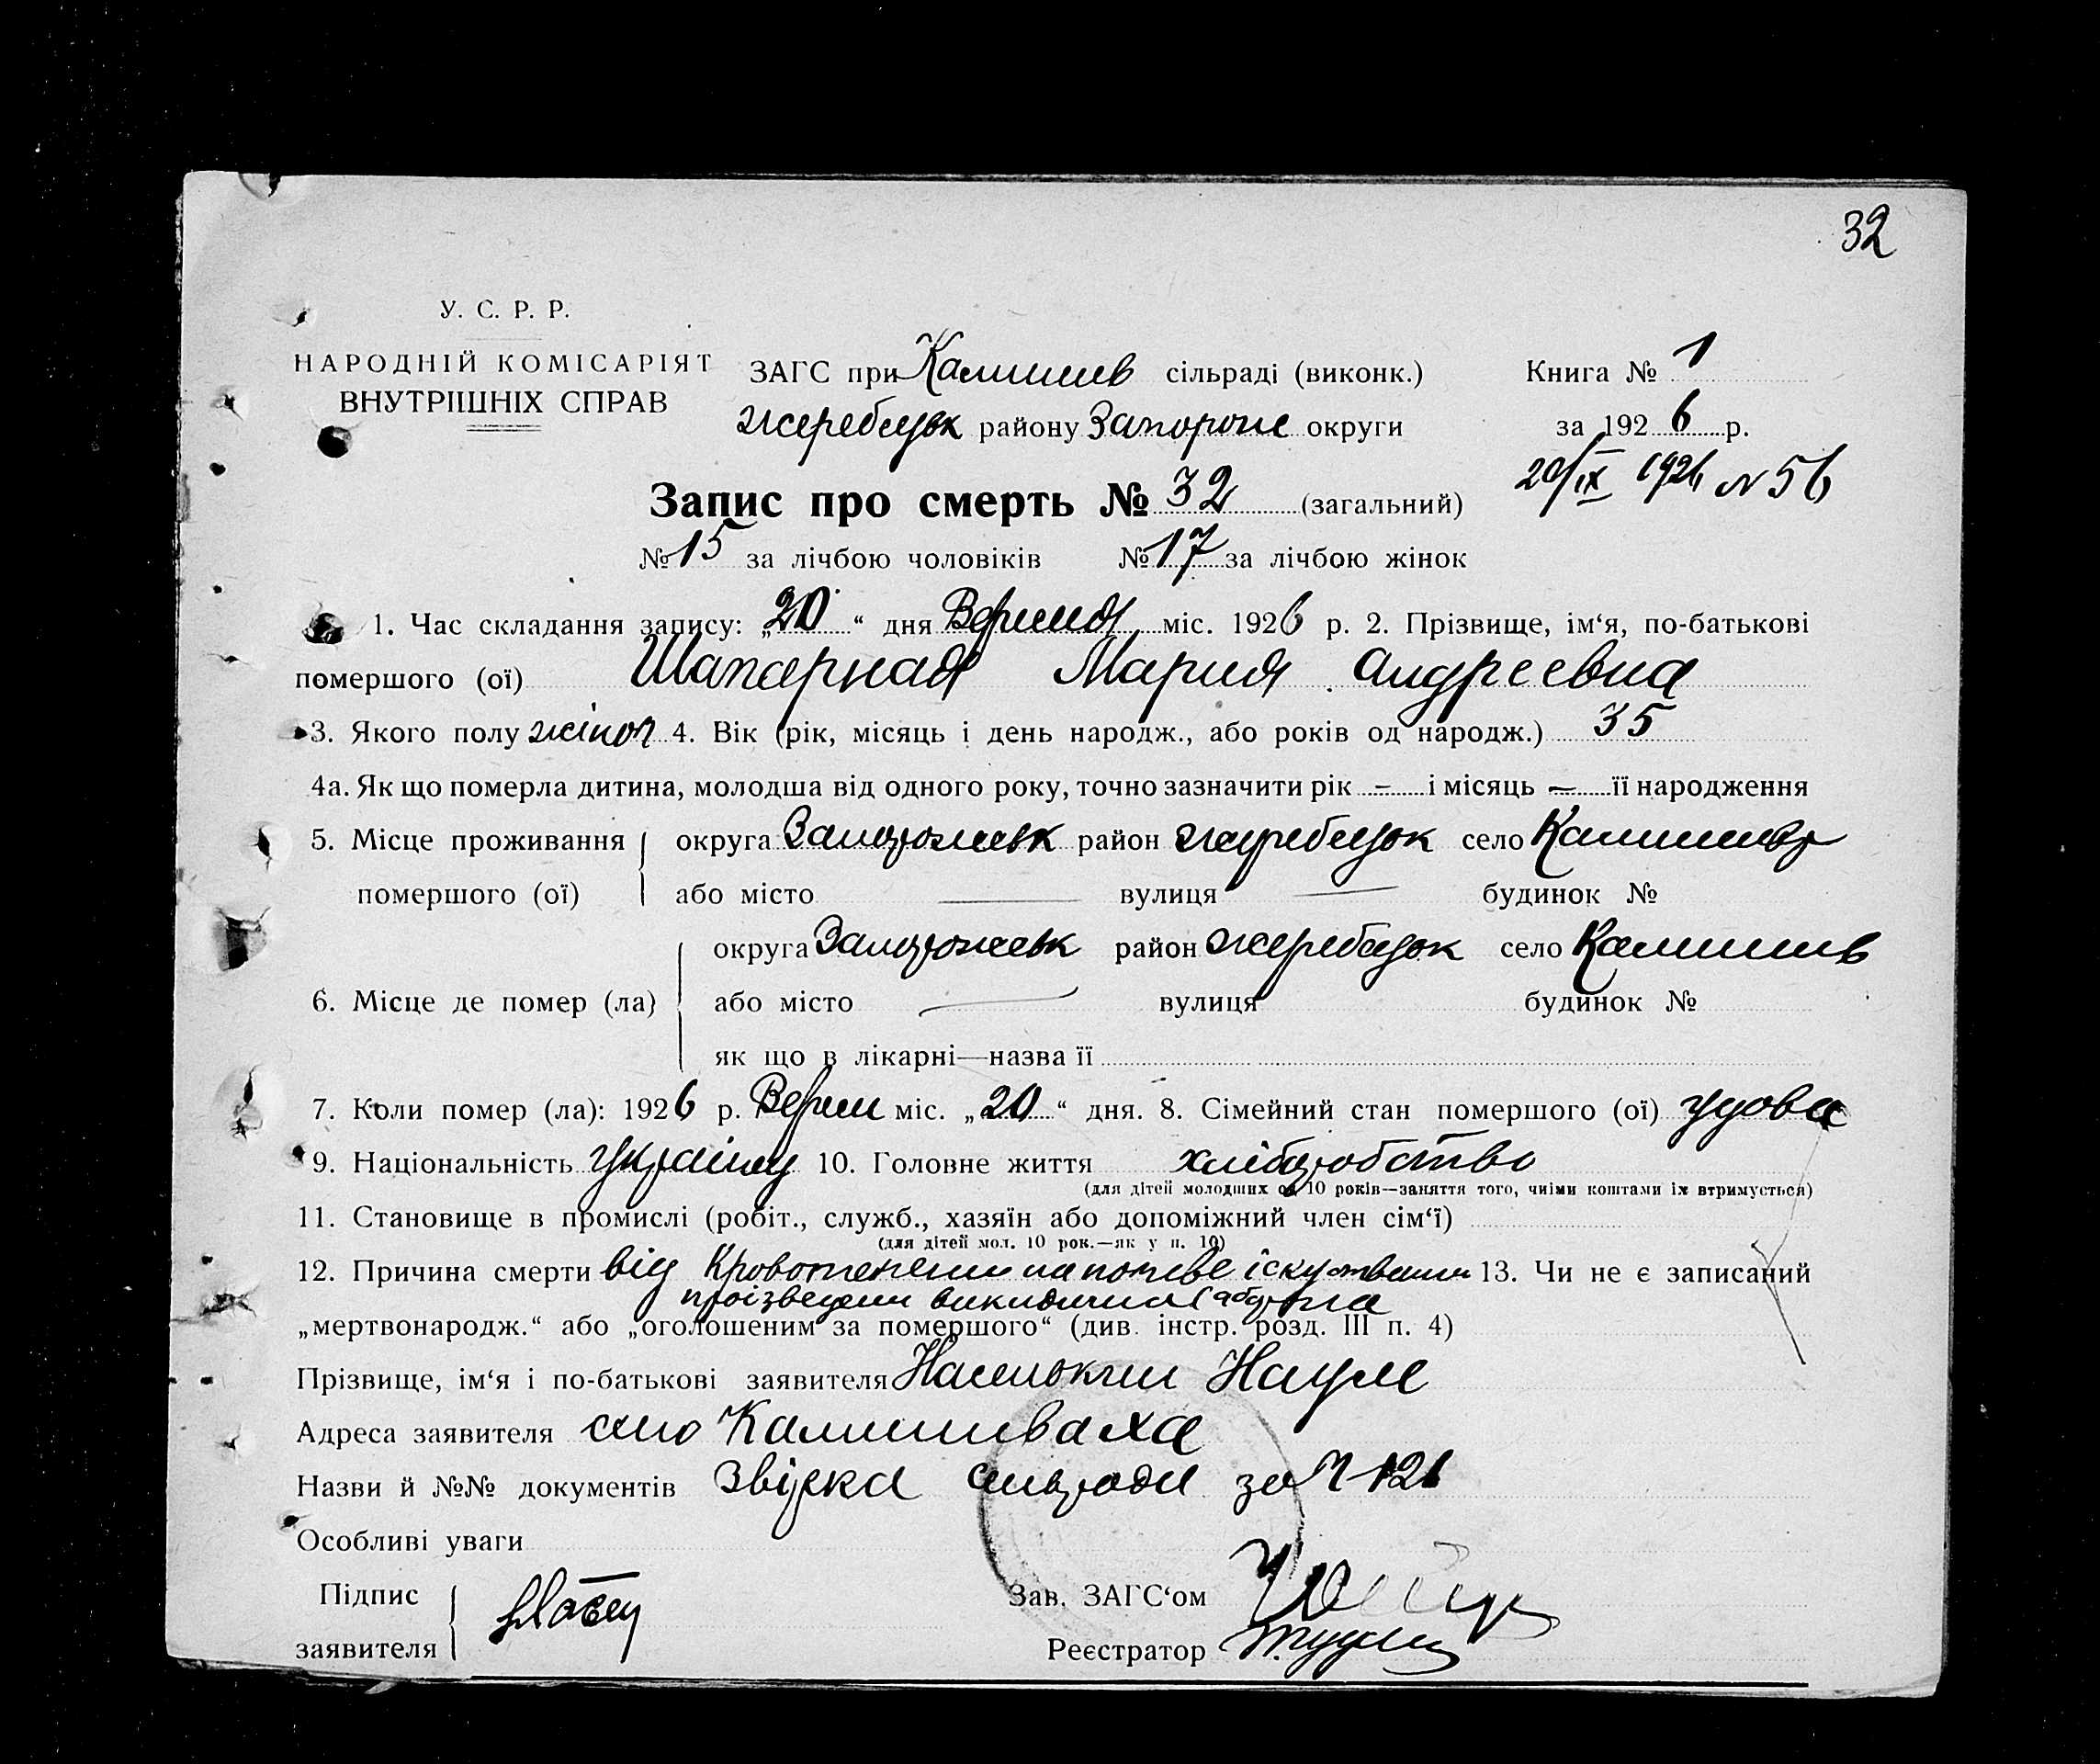 32
У. С. Р. Р.
НАРОДНІЙ КОМІСАРІЯТ
ВНУТРІШНІХ СПРАВ
ЗАГС при Камишев сільраді (виконк.)
Жеребецьк району Запорож округи
Книга № 1
за 1926 р.
20/IX 1926 N 56
Запис про смерть № 32 (загальний)
№ 15 за лічбою чоловіків № 17 за лічбою жінок
1. Час складання запису: „20“ дня Вересня міс. 1926 р. 2. Прізвище, ім‘я, по-батькові
помершого (ої) Шапарная Мария Андреевна
3. Якого полу жіноч 4. Вік (рік, місяць і день народж., або років од народж.) 35
4а. Як що померла дитина, молодша від одного року, точно зазначити рік – і місяць – її народження
5. Місце проживання помершого (ої) округа Запорожськ район Жеребецьк село Камишев
або місто — вулиця — будинок №
6. Місце де помер (ла) округа Запорожськ район Жеребецьк село Камишив
або місто — вулиця будинок №
як що в лікарні—назва її
7. Коли помер (ла): 1926 р. Верес міс. „20“ дня. 8. Сімейний стан помершого (ої) удова
9. Національність україн 10. Головне життя хліборобство
(для дітей молодших од 10 років—заняття того, чиїми коштами їх втримується)
11. Становище в промислі (робіт., служб., хазяїн або допоміжний член сім‘ї)
(для дітей мол. 10 рок.—як у п. 10)
12. Причина смерти від Кровотечении на почве іскуствени 13. Чи не є записаний
произведени викидиша (аборта
„мертвонародж.“ або „оголошеним за помершого“ (див. інстр. розд. III п. 4)
Прізвище, ім‘я і по-батькові заявителя Наум
Адреса заявителя село Камишеваха
Назви й №№ документів сільради за N 121
Особливі уваги
Підпис заявителя
Зав. ЗАГС‘ом
Реєстратор